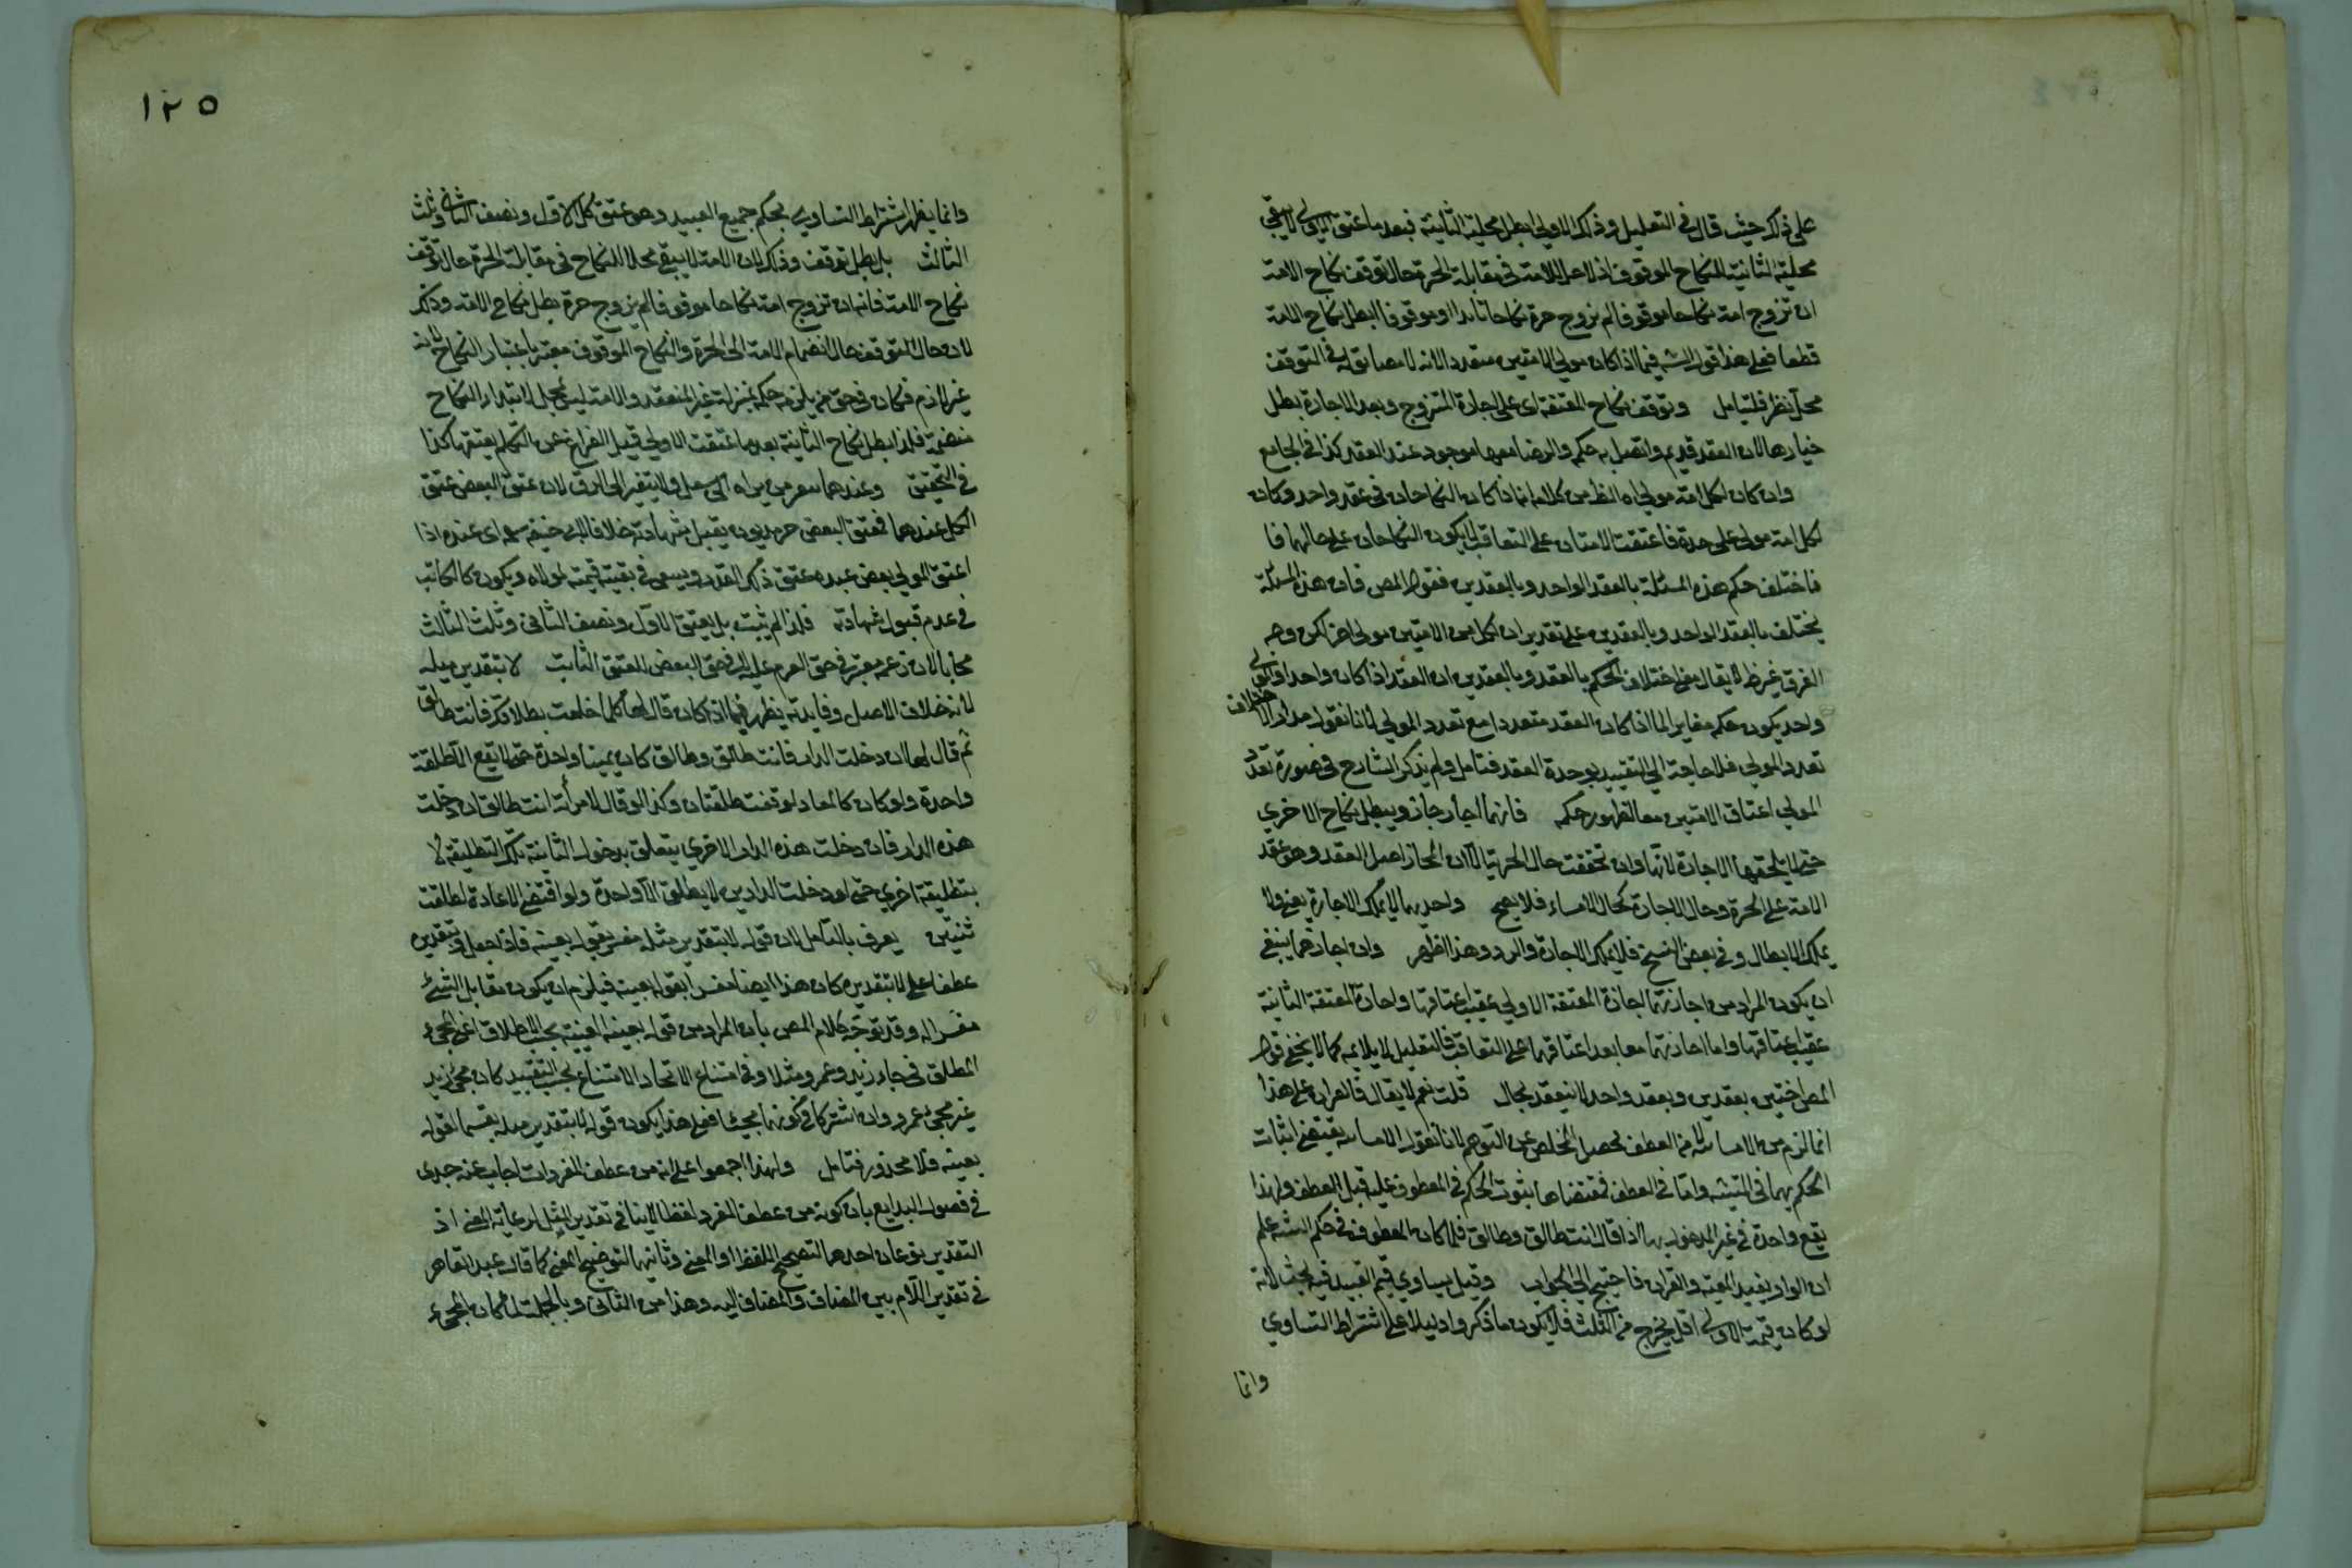 على ذلك حيث قال في التعليل وذلك الاولى ابطل محلية الثانية فبعد ما اعتق الاولى لا يبقى
محلية الثانية للنكاح الموقوف اذ لا حل للامة في مقابلة الحرة حال توقف نكاح الامة
ان تزوج امة نكاحا موقوفا ثم تزوج حرة نكاحا نافذا او موقوفا ابطل نكاح الامة
قطعا فعلى هذا قول الش فيما اذا كان مولى الامتين متعددا لانه لا مضايق له في التوقف
محل نظر فليتامل وتوقف نكاح المعتقة اى على اجازة المتزوج وبعد الاجازة بطل
خيارها لان العقد قديم واتصل به حكم والرضا معها موجود عند العقد كذا في الجامع
وان كان لكل امة مولى اه الظ من كلامه انما اذا كان النكاحان في عقد واحد وكان
لكل امة مولى على حدة فاعتقت الامتان على التعاقب لا يكون النكاحان على حالهما فا
فاختلف حكم هذه المسئلة بالعقد الواحد وبالعقدين فقول المص فان هذه المسئلة
يختلف بالعقد الواحد وبالعقدين على تقدير ان لكل من الامتين مولى اخر لكن وجه
الفرق غير ظ لا يقال معنى اختلاف الحكم بالعقد وبالعقدين ان العقد اذا كان واحدا والمولى
واحد يكون حكمه مغايرا لما اذا كان العقد متعددا مع تعدد المولى لانا نقول مدار الاختلاف
تعدد المولى فلا حاجة الى التقييد بوحدة العقد فتامل ولم يذكر الشارح في صورة تعدد
المولى اعتاق الامتين معا لظهور حكمه فانهما اجاز جاز ويبطل نكاح الاخرى
حتى لا يلحقها الاجازة لانها وان تحققت حال الحرية الا ان المجاز اصل العقد وهو عقد
الامة على الحرة وحال الاجازة كحال الانشاء فلا يصح واحديهما لا يملك الاجازة يعنى ولا
يملك الابطال وفي بعض النسخ فلا يملك الاجازة والرد وهذا اظهر وان اجازهما ينبغى
ان يكون المراد من اجازتهما اجازة المعتقة الاولى عقيب اعتاقها واجازة المعتقة الثانية
عقيب اعتاقها واما اجازتهما معا بعد اعتاقهما على التعاقب فالتعليل لا يلايمه كما لا يخفى قول
المص اختين بعقدين وبعقد واحد لا ينعقد بحال قلت نعم لا يقال فالقران على هذا
انما لزم من الانشاء لا من العطف لحصل المخلص عن التوهم لانا نقول الانشاء يقتضى اثبات
الحكم بهما في التثنية واما في العطف فمقتضاها ثبوت الحكم في المعطوف عليه قبل العطف ولهذا
يقع واحدة في غير المدخول بها اذا قال انت طالق وطالق فلما كان المعطوف في حكم التثنية علم
ان الواو يفيد المعية والقران فاحتيج الى الجواب وقيل يساوي قيم العبيد فيه بحث لانه
لو كان قيمة الاولى اقل يخرج من الثلث فلا يكون ما ذكروا دليلا على اشتراط التساوي
وانما
١٢٥
وانما يظهر اشتراط التساوي بحكم جميع العبيد وهو عتق كل الاول ونصف الثاني وثلث
الثالث بل بطل توقف وذلك لان الامة لا يبقى محلا للنكاح في مقابلة الحرة حال توقف
نكاح الامة فانه ان تزوج امة نكاحا موقوفا ثم تزوج حرة بطل نكاح الامة وذلك
لان حال التوقف حال انضمام الامة الى الحرة والنكاح الموقوف معتبر بابتداء النكاح لانه
غير لازم فكان في حق من يلزمه حكمه بمنزلة غير المنعقد والامة ليس بمحل لابتداء النكاح
منضمة فلذا بطل نكاح الثانية بعد ما عتقت الاولى قبيل الفراغ عن التكلم بعتقها كذا
في التحقيق وعندهما ولا يتغير الى الرق لان عتق البعض عتق
الكل عندهما فمعتق البعض حر مديون يقبل شهادته خلافا لابى حنيفة رح اى عنده اذا
اعتق المولى بعض عبده عتق ذلك القدر ويسعى في بقية قيمته لمولاه ويكون كالمكاتب
في عدم قبول شهادته فلذا لم يثبت بل يعتق الاول ونصف الثانى وثلث الثالث
مجانا لان زعمه معتبر في حق الغرم عليه لا في حق البعض المعتق الثابت لا بتقدير مثله
لانه خلاف الاصل وفايدته يظهر فيما اذا كان قال لها كلما حلفت بطلاقك فانت طالق
ثم قال لها ان دخلت الدار فانت طالق وطالق كان يمينا واحدة حتى لا يقع الا طلقة
واحدة ولو كان كالمعاد لوقعت طلقتان وكذا لو قال لامرأته انت طالق ان دخلت
هذه الدار فان دخلت هذه الدار الاخرى يتعلق بدخول الثانية تلك التطليقة لا
بتطليقة اخرى حتى لو دخلت الدارين لا يطلق الا واحدة ولو اقتضى الاعادة لطلقت
ثنتين يعرف بالتامل لان قوله لا بتقدير مثله مفسر بقوله بعينه فاذا جعل وبتقدير
عطفا على لا بتقديره كان هذا ايضا مفسرا بقوله بعينه فيلزم ان يكون مقابل الشئ
مفسرا له وقد توجه كلام المص بان المراد من قوله بعينه العينية بحسب الاطلاق اعنى المجئ
المطلق في جاء زيد وعمرو مثلا وفي امتناع الاتحاد الامتناع بحسب التقييد كان مجئ زيد
غير مجئ عمرو وان اشتركا في كونهما مجيئا فعلى هذا يكون قوله لا بتقدير مثله بقسيما لقوله
بعينه فلا محذور فتامل ولهذا اجمعوا على انه من عطف المفردات اجاب عنه جدى
في فصول البدايع بان كونه من عطف المفرد لفظا لا ينافي تقدير المثل لرعاية المعنى اذ
التقدير نوعان احدهما التصحيح اللفظ او المعنى وثانيهما التوضيح المعنى كما قال عبد القاهر
في تقدير اللام بين المضاف والمضاف اليه وهذا من الثانى وبالجملة لما كان المجئ